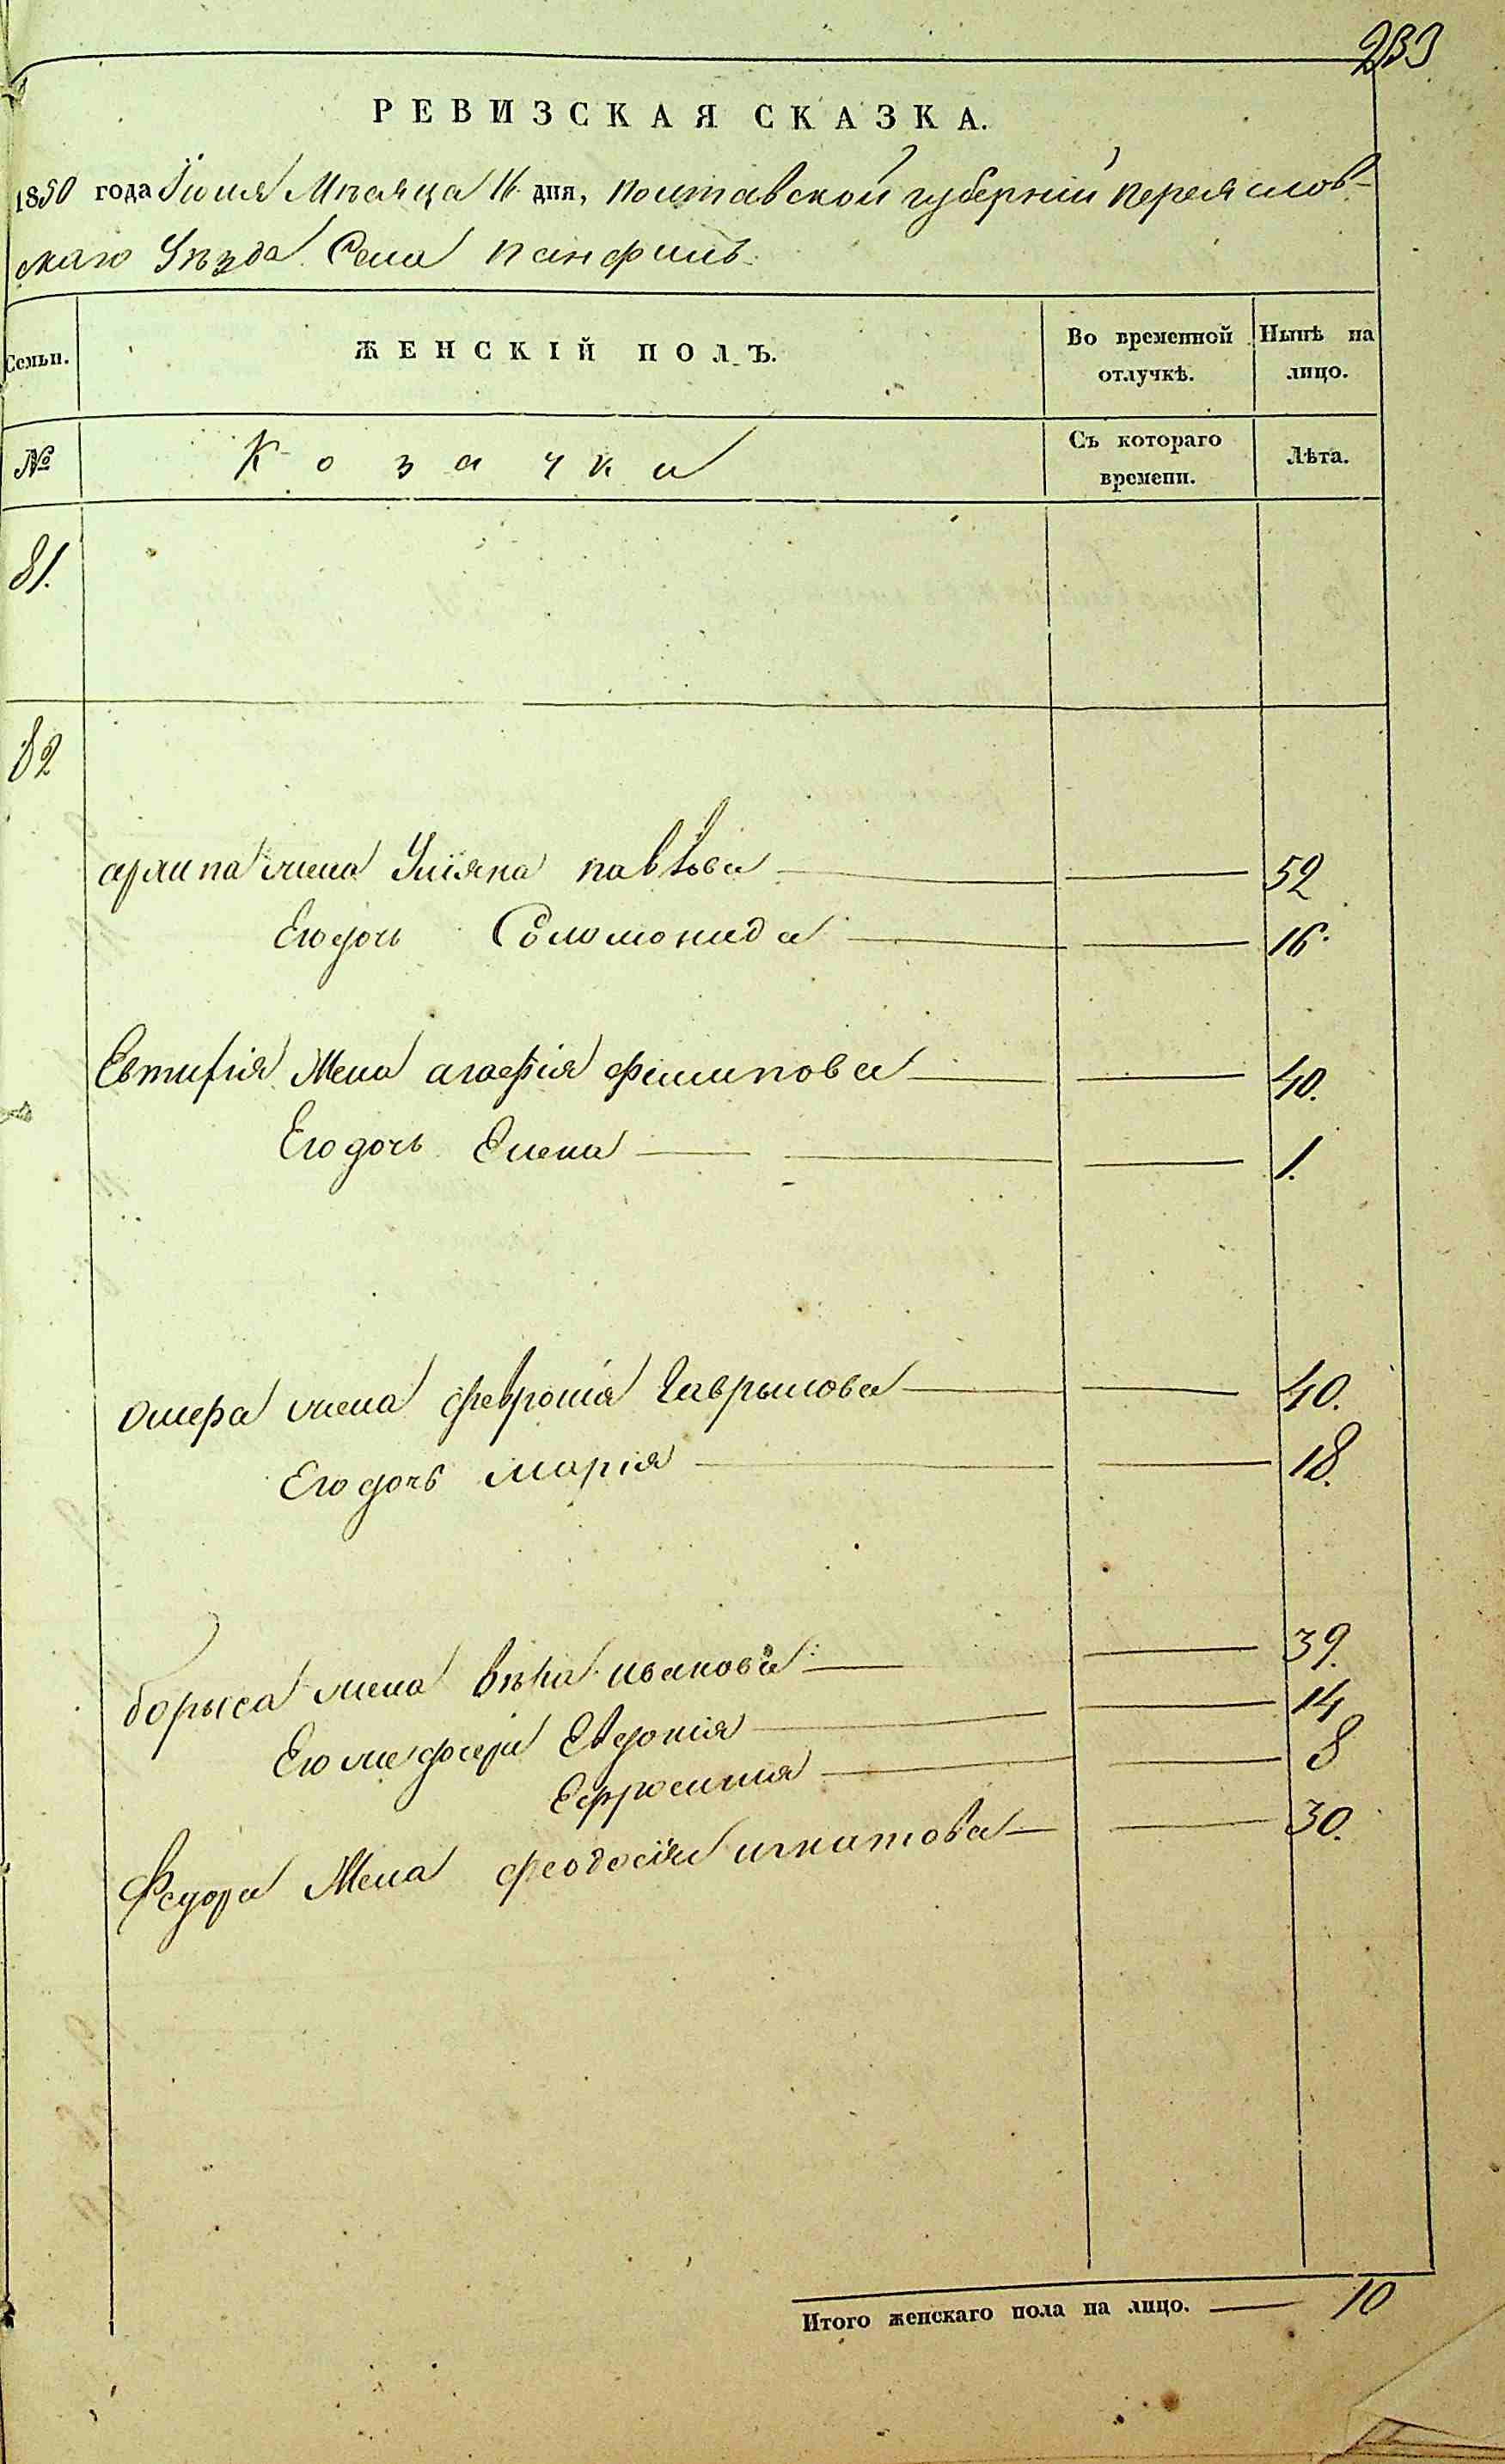 233
РЕВИЗСКАЯ СКАЗКА.
1850 года Июля Мѣсяца 16 дня, полтавской губерніи переяслов-
скаго Уѣзда Села панфилъ
Семьи. ЖЕНСКІЙ ПОЛЪ. Во временной отлучкѣ. Нынѣ на лицо.
№ Козачки Съ котораго времени. Лѣта.
81.
82
архипа жена Уліяна павлова 52
Его дочь Соломонида 16.
Евтифія Жена агафія филипова 40.
Его дочь Елена 1.
жена февронія Гаврылова 40.
Его дочь марія 18.
борыса жена ивановa 39.
Его дочери Евдокія 14
Ефросинія 8
Федора Жена феодосія игнатова 30.
Итого женскаго пола на лицо. 10